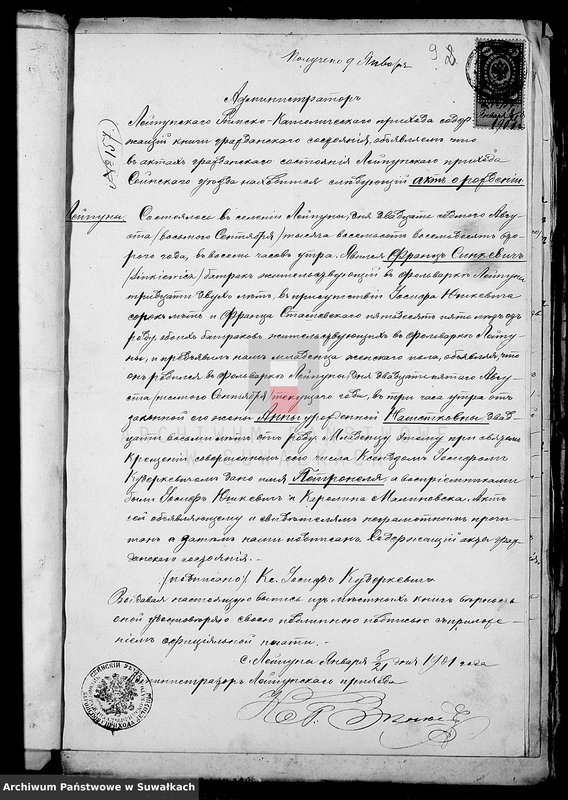 Получено 9 Январь
9 2
Администраторъ
Лейпунскаго Римско-Католическаго прихода содер-
жащій книги гражданскаго состоянія, объявляетъ что
въ актахъ гражданскаго состоянія Лейпунскаго прихода
Сейнскаго уѣзда находится слѣдующій актъ о рожденіи
Лейпуны. Состоялось въ селеніи Лейпуны, дня двадцать седьмого Авгу-
ста /восьмого Сентября/ тысяча восемьсотъ восемьдесятъ вто-
рого года, въ восемь часовъ утра. Явился Францъ Синкевичъ
/Sinkiewicz/ батракъ жительствующій въ фольваркѣ Лейпуны
тридцати двухъ лѣтъ, въ присутствіи Іосифа Юшкевича
сорокъ лѣтъ и Франца Сташевскаго пятьдесятъ пять лѣтъ отъ
роду, обоихъ батраковъ жительствующихъ въ фольваркѣ Лейпу-
ны, и предъявилъ намъ младенца женскаго пола, объявляя, что
онъ родился въ фольваркѣ Лейпуны, дня двадцать пятаго Авгу-
ста /шестого Сентября/ текущаго года, въ три часа утра отъ
законной его жены Анны урожденной двад-
цати восьми лѣтъ отъ роду. Младенцу этому при святомъ
Крещеніи совершенномъ сего числа Ксендзомъ Іосифомъ
Кудеркевичомъ дано имя Петронеля, а воспріемниками
были Іосифъ Юшкевичъ и Каролина Малиновска. Актъ
сей объявляющему и свидѣтелямъ неграмотнымъ прочи-
танъ а затѣмъ нами подписанъ. Содержащій акты граж-
данскаго состоянія.
/подписано/ Кс. Іосифъ Кудеркевичъ
Выдавая настоящую выпись изъ мѣстныхъ книгъ вѣрность
оной удостовѣряю своею подлинною подписью съ приложе-
ніемъ оффиціальной печати.
с. Лейпуны Января 8/21 дня 1901 года
Администраторъ Лейпунскаго прихода
ARCHIWUM PAŃSTWOWE
W SUWAŁKACH
Archiwum Państwowe w Suwałkach